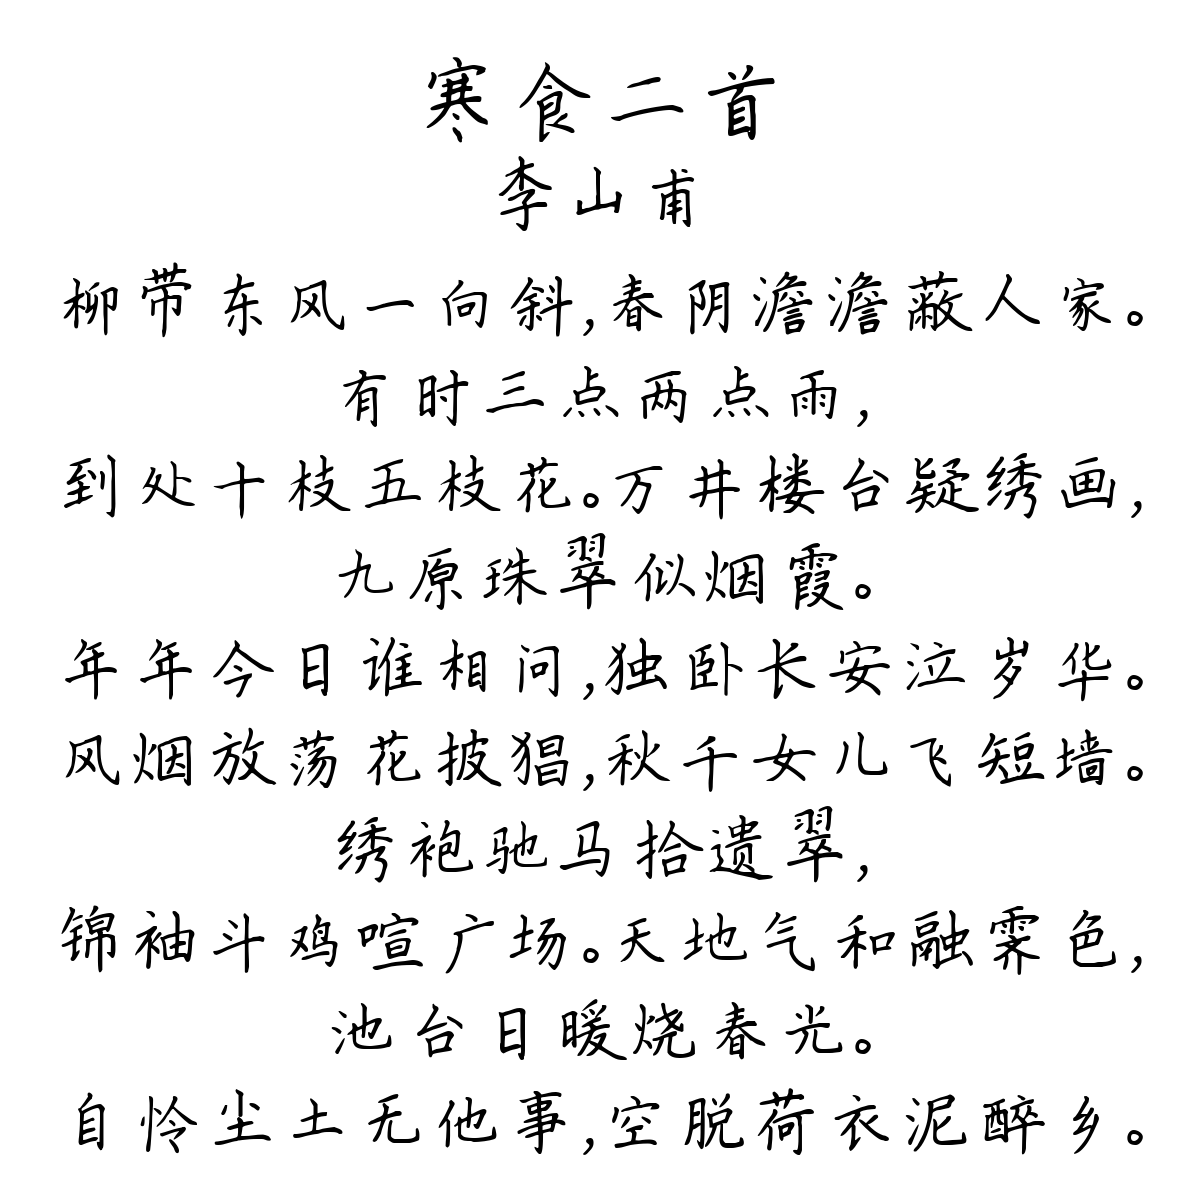 寒食二首
李山甫
柳带东风一向斜,春阴澹澹蔽人家。
有时三点两点雨,
到处十枝五枝花。万井楼台疑绣画,
九原珠翠似烟霞。
年年今日谁相问,独卧长安泣岁华。
风烟放荡花披猖,秋千女儿飞短墙。
绣袍驰马拾遗翠,
锦袖斗鸡喧广场。天地气和融霁色,
池台日暖烧春光。
自怜尘土无他事,空脱荷衣泥醉乡。